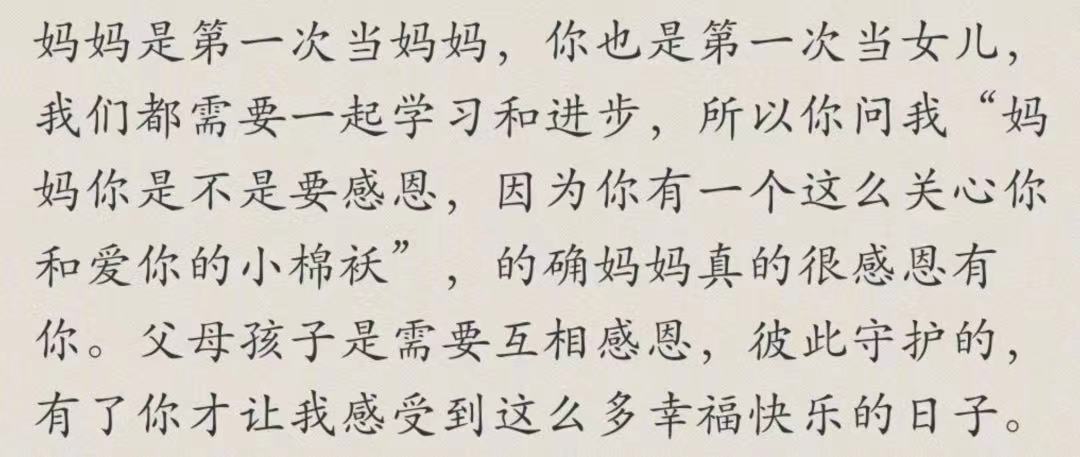 妈妈是第一次当妈妈，你也是第一次当女儿，
我们都需要一起学习和进步，所以你问我“妈
妈你是不是要感恩，因为你有一个这么关心你
和爱你的小棉袄”，的确妈妈真的很感恩有
你。父母孩子是需要互相感恩，彼此守护的，
有了你才让我感受到这么多幸福快乐的日子。